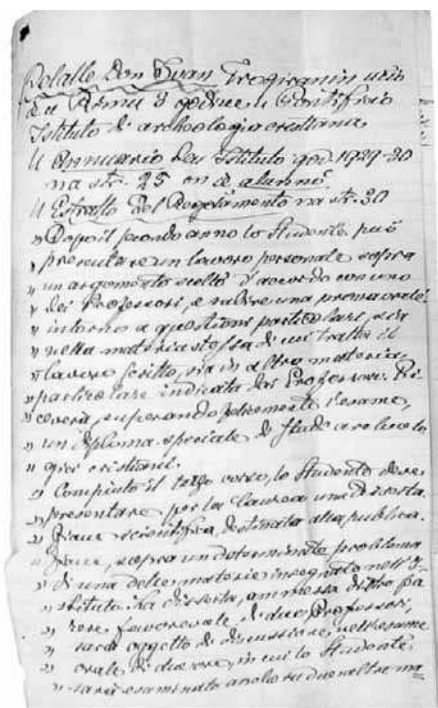 Delalle Don Ivan Trogiranin uči
u Rimu 3 godine u Pontificio
Istituto di archeologia cristiana.
U Annuario tog Istituto god. 1929-30
na str. 25 on è alunno.
U Estratto del Regolamento na str. 30
" Dopo il secondo anno lo Studente può
" presentare un lavoro personale sopra
" un argomento scelto d'accordo con uno
" dei Professori, e subire una prova orale
" intorno a questioni particolari, sia
" nella materia stessa di cui tratta il
" lavoro scritto, sia in altra materia
" particolare indicata dai Professori. Ri-
" ceverà, superando felicemente l'esame,
" un diploma speciale di studi archeolo
" gici cristiani.
" Compiuto il terzo corso, lo Studente deve
" presentare per la laurea una disserta-
" zione scientifica, destinata alla pubblica-
" zione, sopra un determinato problema
" di una delle materie insegnate nell'I-
" stituto. La dissert., ammessa dietro pa
" rere favorevole di due Professori,
" sarà oggetto di discussione nell'esame
" orale di due ore, in cui lo Studente
" sarà esaminato anche su due altre ma